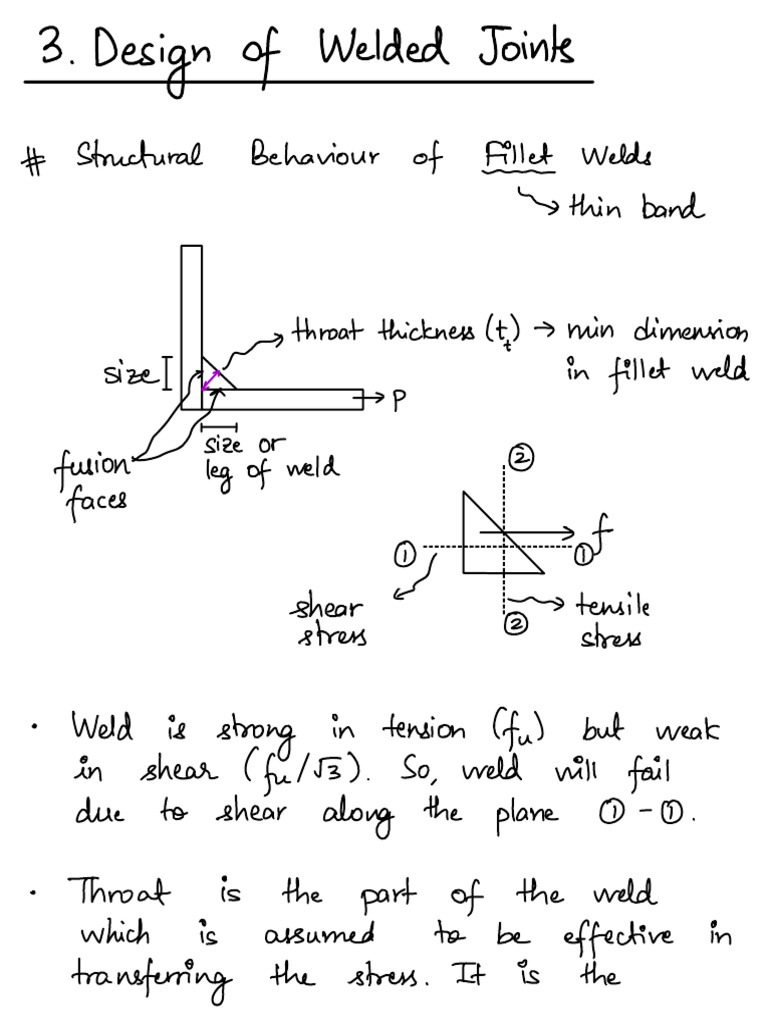 3. Design of Welded Joints
# Structural Behaviour of Fillet Welds
thin band
throat thickness (t_t) → min dimension
in fillet weld
size
P
size or
leg of weld
fusion
faces
②
① ① f
shear
stress
tensile
stress
②
· Weld is strong in tension (fu) but weak
in shear (fu/√3). So, weld will fail
due to shear along the plane ① - ①.
· Throat is the part of the weld
which is assumed to be effective in
transferring the stress. It is the